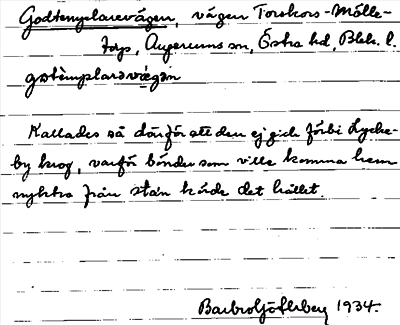 Godtemplarevägen, vägen Torskors-Mölle-
torp, Augerums sn, Östra hd, Blek. l.
gotèmplarəvǽgən
Kallades så därför att den ej gick förbi Lycke-
by krog, varför bönder som ville komma hem
nyktra från stan körde det hållet.
Barbro Sjöfelberg 1934.